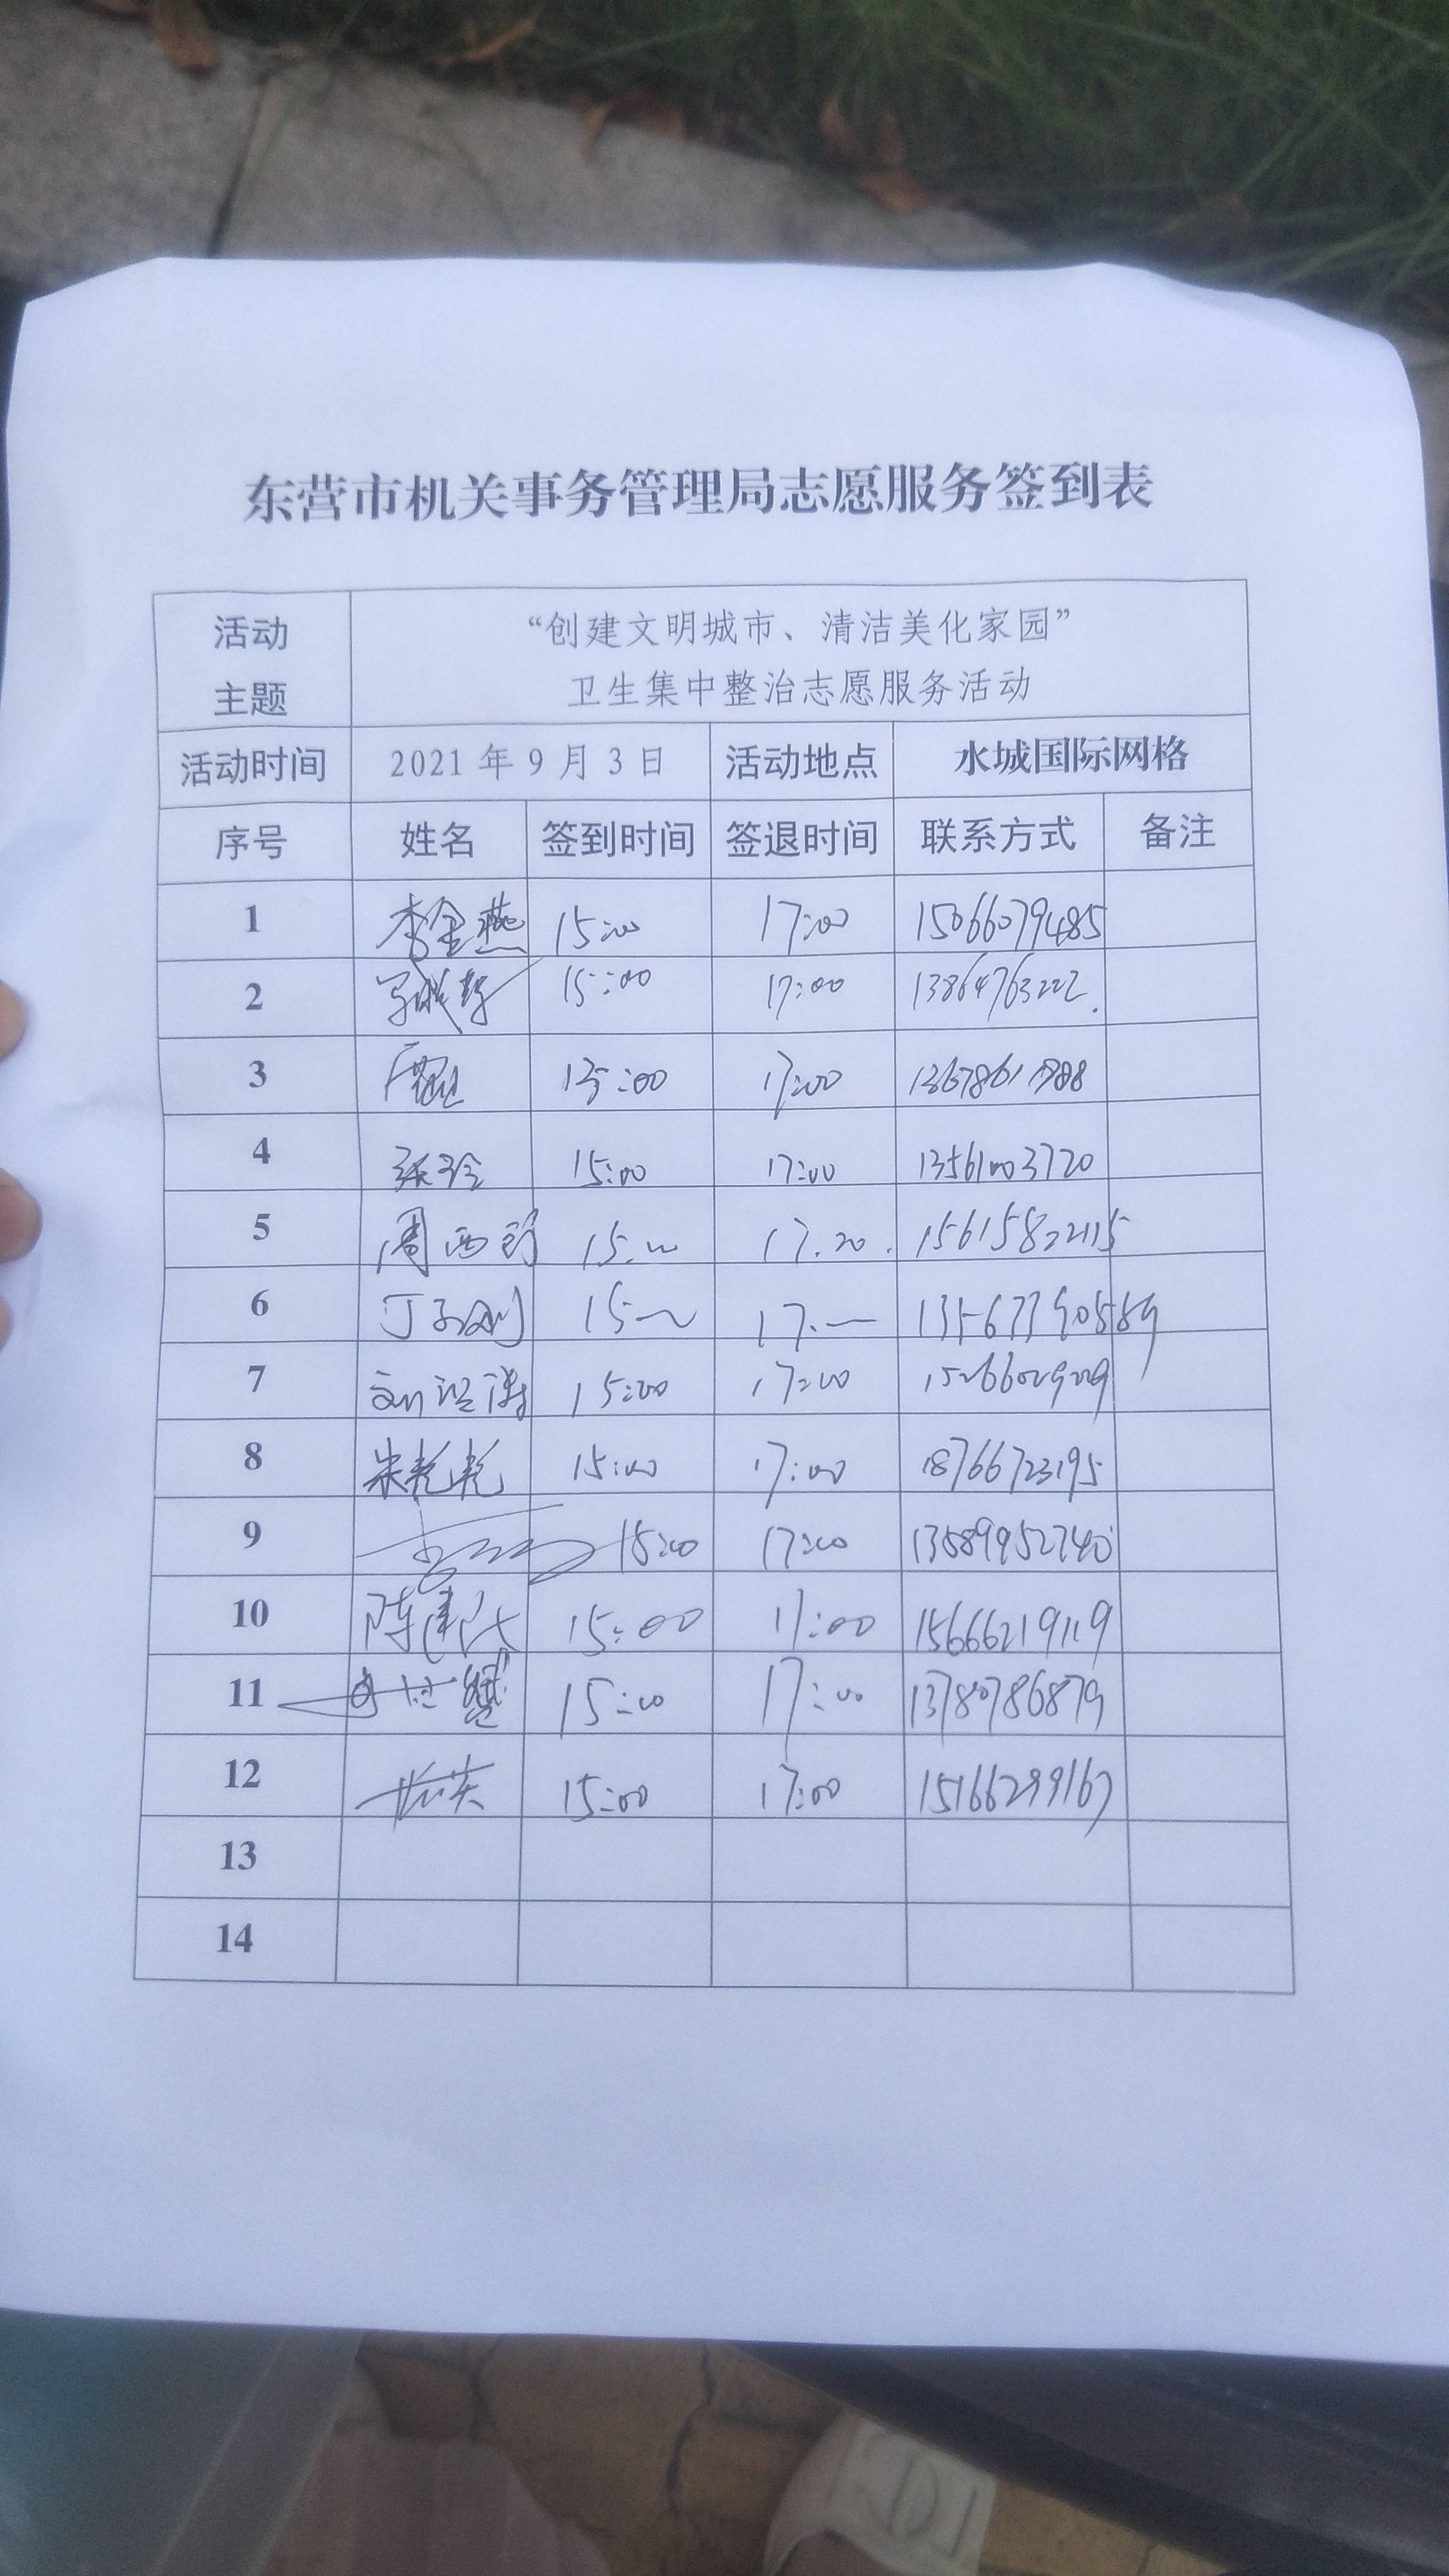 东营市机关事务管理局志愿服务签到表
活动主题 “创建文明城市、清洁美化家园”
卫生集中整治志愿服务活动
活动时间 2021年9月3日 活动地点 水城国际网格
序号 姓名 签到时间 签退时间 联系方式 备注
1 李金燕 15:00 17:00 15066079485
2 15:00 17:00 13864763222.
3 15:00 17:00
4 张玲 15:00 17:00 13561003720
5 周西 15:00 17.20. 15615822115
6 丁子刚 15:~ 17:—
7 刘 15:00 17:00 15266029209
8 朱彪彪 15:00 17:00 18766723195
9 15:00 17:00 13589952740
10 陈建 15:00 17:00 15666219119
11 15:00 17:00 13780786879
12 15:00 17:00 15166299167
13
14